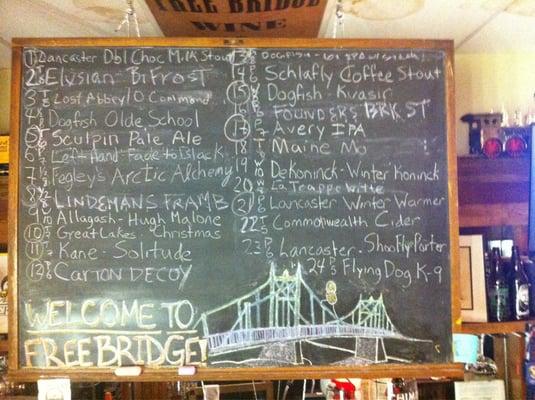 FREE BRIDGE
WINE
1 Lancaster Dbl Choc Milk Stout
2 Elysian BiFrost
3 Lost Abbey 10 Command
4 Dogfish Olde School
5 Sculpin Pale Ale
6 Left Hand-Fade to Black
7 Fegley's Arctic Alchemy
8 LINDEMANS FRAMB
9 Allagash-Hugh Malone
10 Great Lakes-Christmas
11 Kane-Solitude
12 CARTON DECOY
WELCOME TO
FREEBRIDGE!
13 Dogfish
14 Schlafly Coffee Stout
15 Dogfish-Kvasir
16 FOUNDERS BRK ST
17 Avery IPA
18 Maine Mo
19 Dekoninck-Winter Koninck
20 La Trappe Witte
21 Lancaster Winter Warmer
22 Commonwealth Cider
23 Lancaster-Shoo Fly Porter
24 Flying Dog K-9